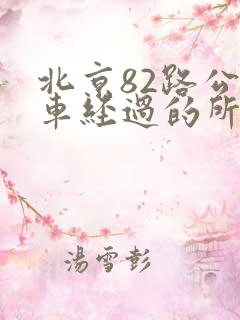 北京82路公
車經過的所
湯雪彭